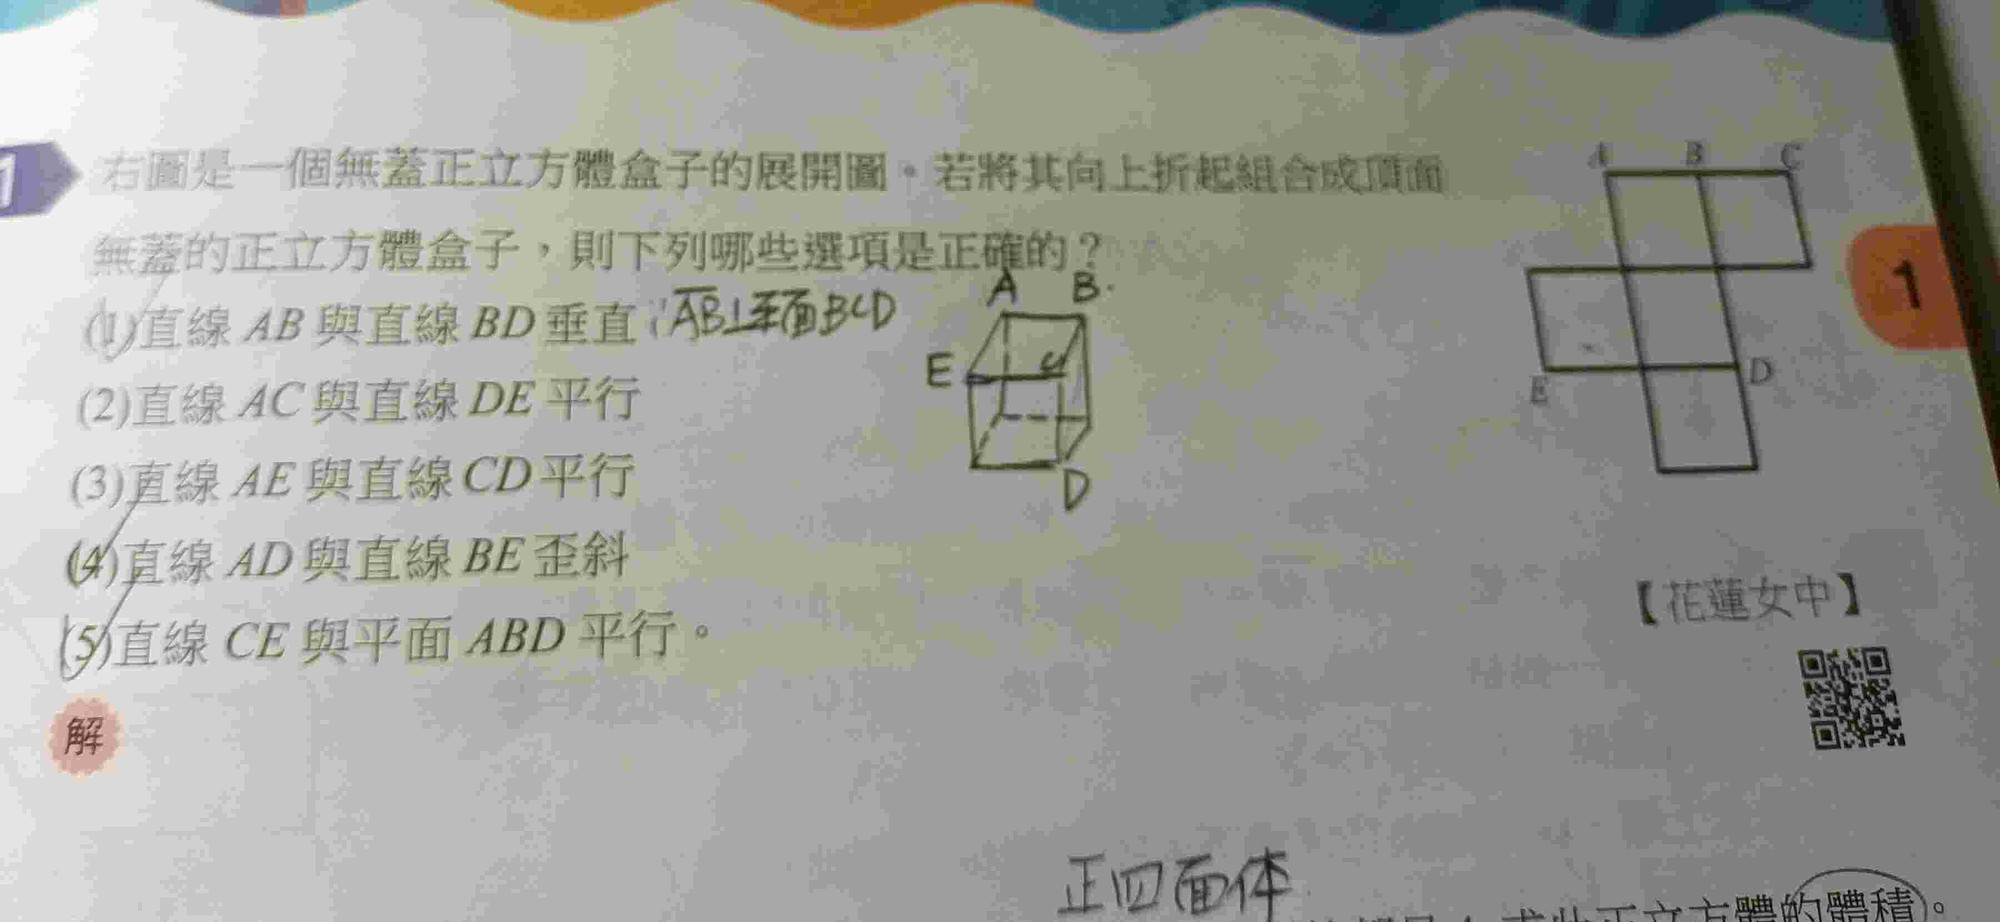 右圖是一個無蓋正立方體盒子的展開圖。若將其向上折起組合成頂面
無蓋的正立方體盒子,則下列哪些選項是正確的?
(1)直線 AB 與直線 BD 垂直 ∵AB⊥平面BCD
(2)直線 AC 與直線 DE 平行
(3)直線 AE 與直線 CD 平行
(4)直線 AD 與直線 BE 歪斜
(5)直線 CE 與平面 ABD 平行。
A B
E C
D
A B C
E D
1
【花蓮女中】
解
正四面体
正立方體的體積。